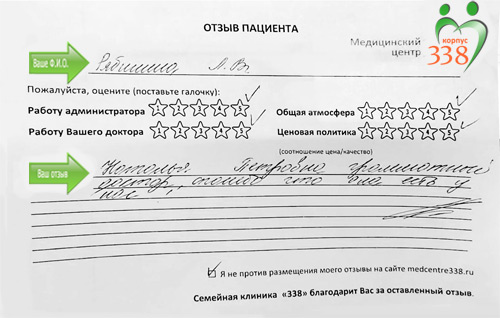 ОТЗЫВ ПАЦИЕНТА
Медицинский центр
корпус 338
Ваше Ф.И.О.
Рябинина Л. В.
Пожалуйста, оцените (поставьте галочку):
Работу администратора 1 2 3 4 5
Общая атмосфера 1 2 3 4 5
Работу Вашего доктора 1 2 3 4 5
Ценовая политика 1 2 3 4 5
(соотношение цена/качество)
Ваш отзыв
Наталья Петровна грамотный
доктор, спасибо что она есть у
нас!
Я не против размещения моего отзыва на сайте medcentre338.ru
Семейная клиника «338» благодарит Вас за оставленный отзыв.